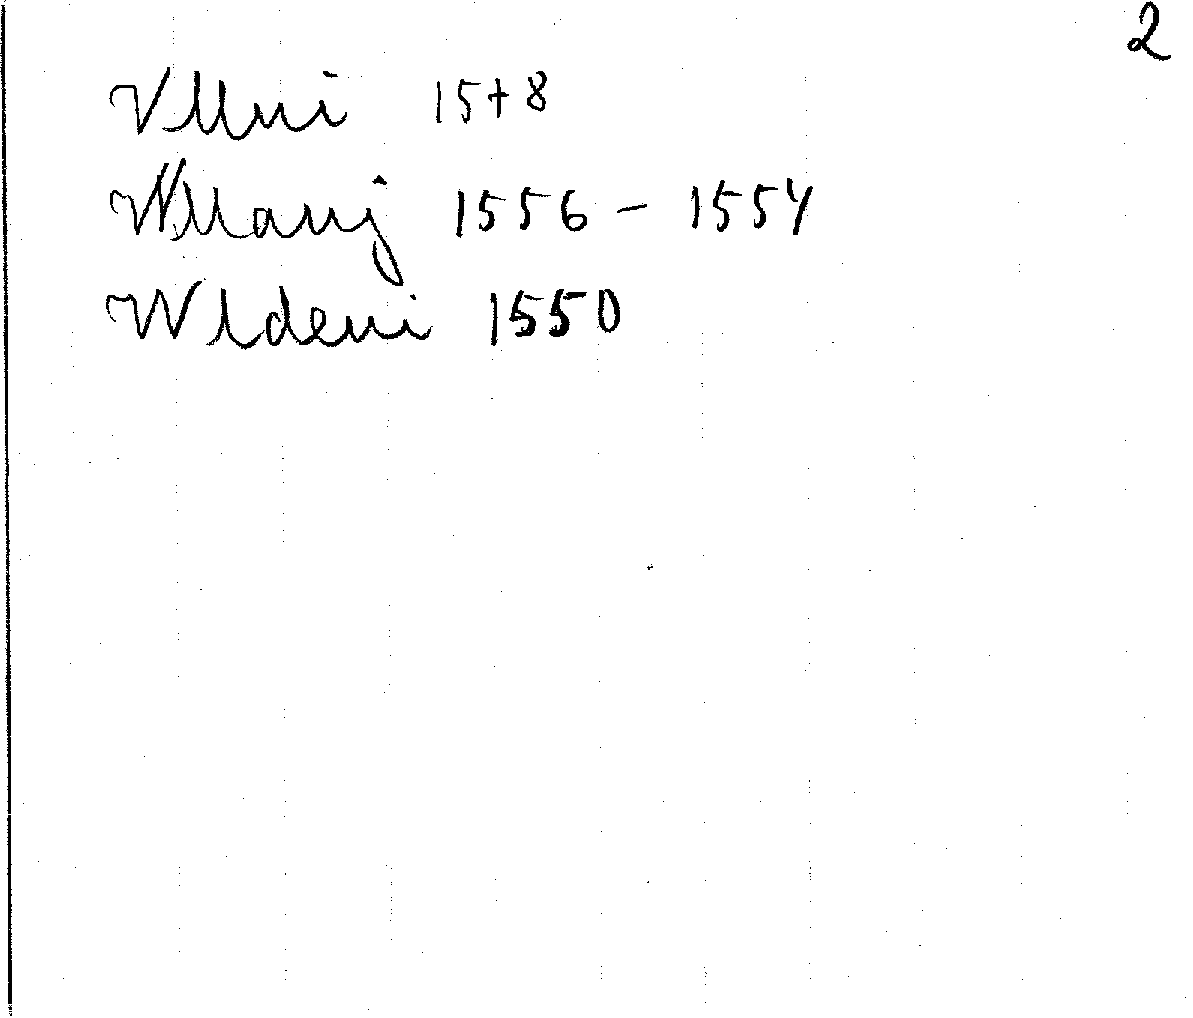 2
Vllni 15+8
Wllanÿ 1556 - 1554
Wldeni 1550